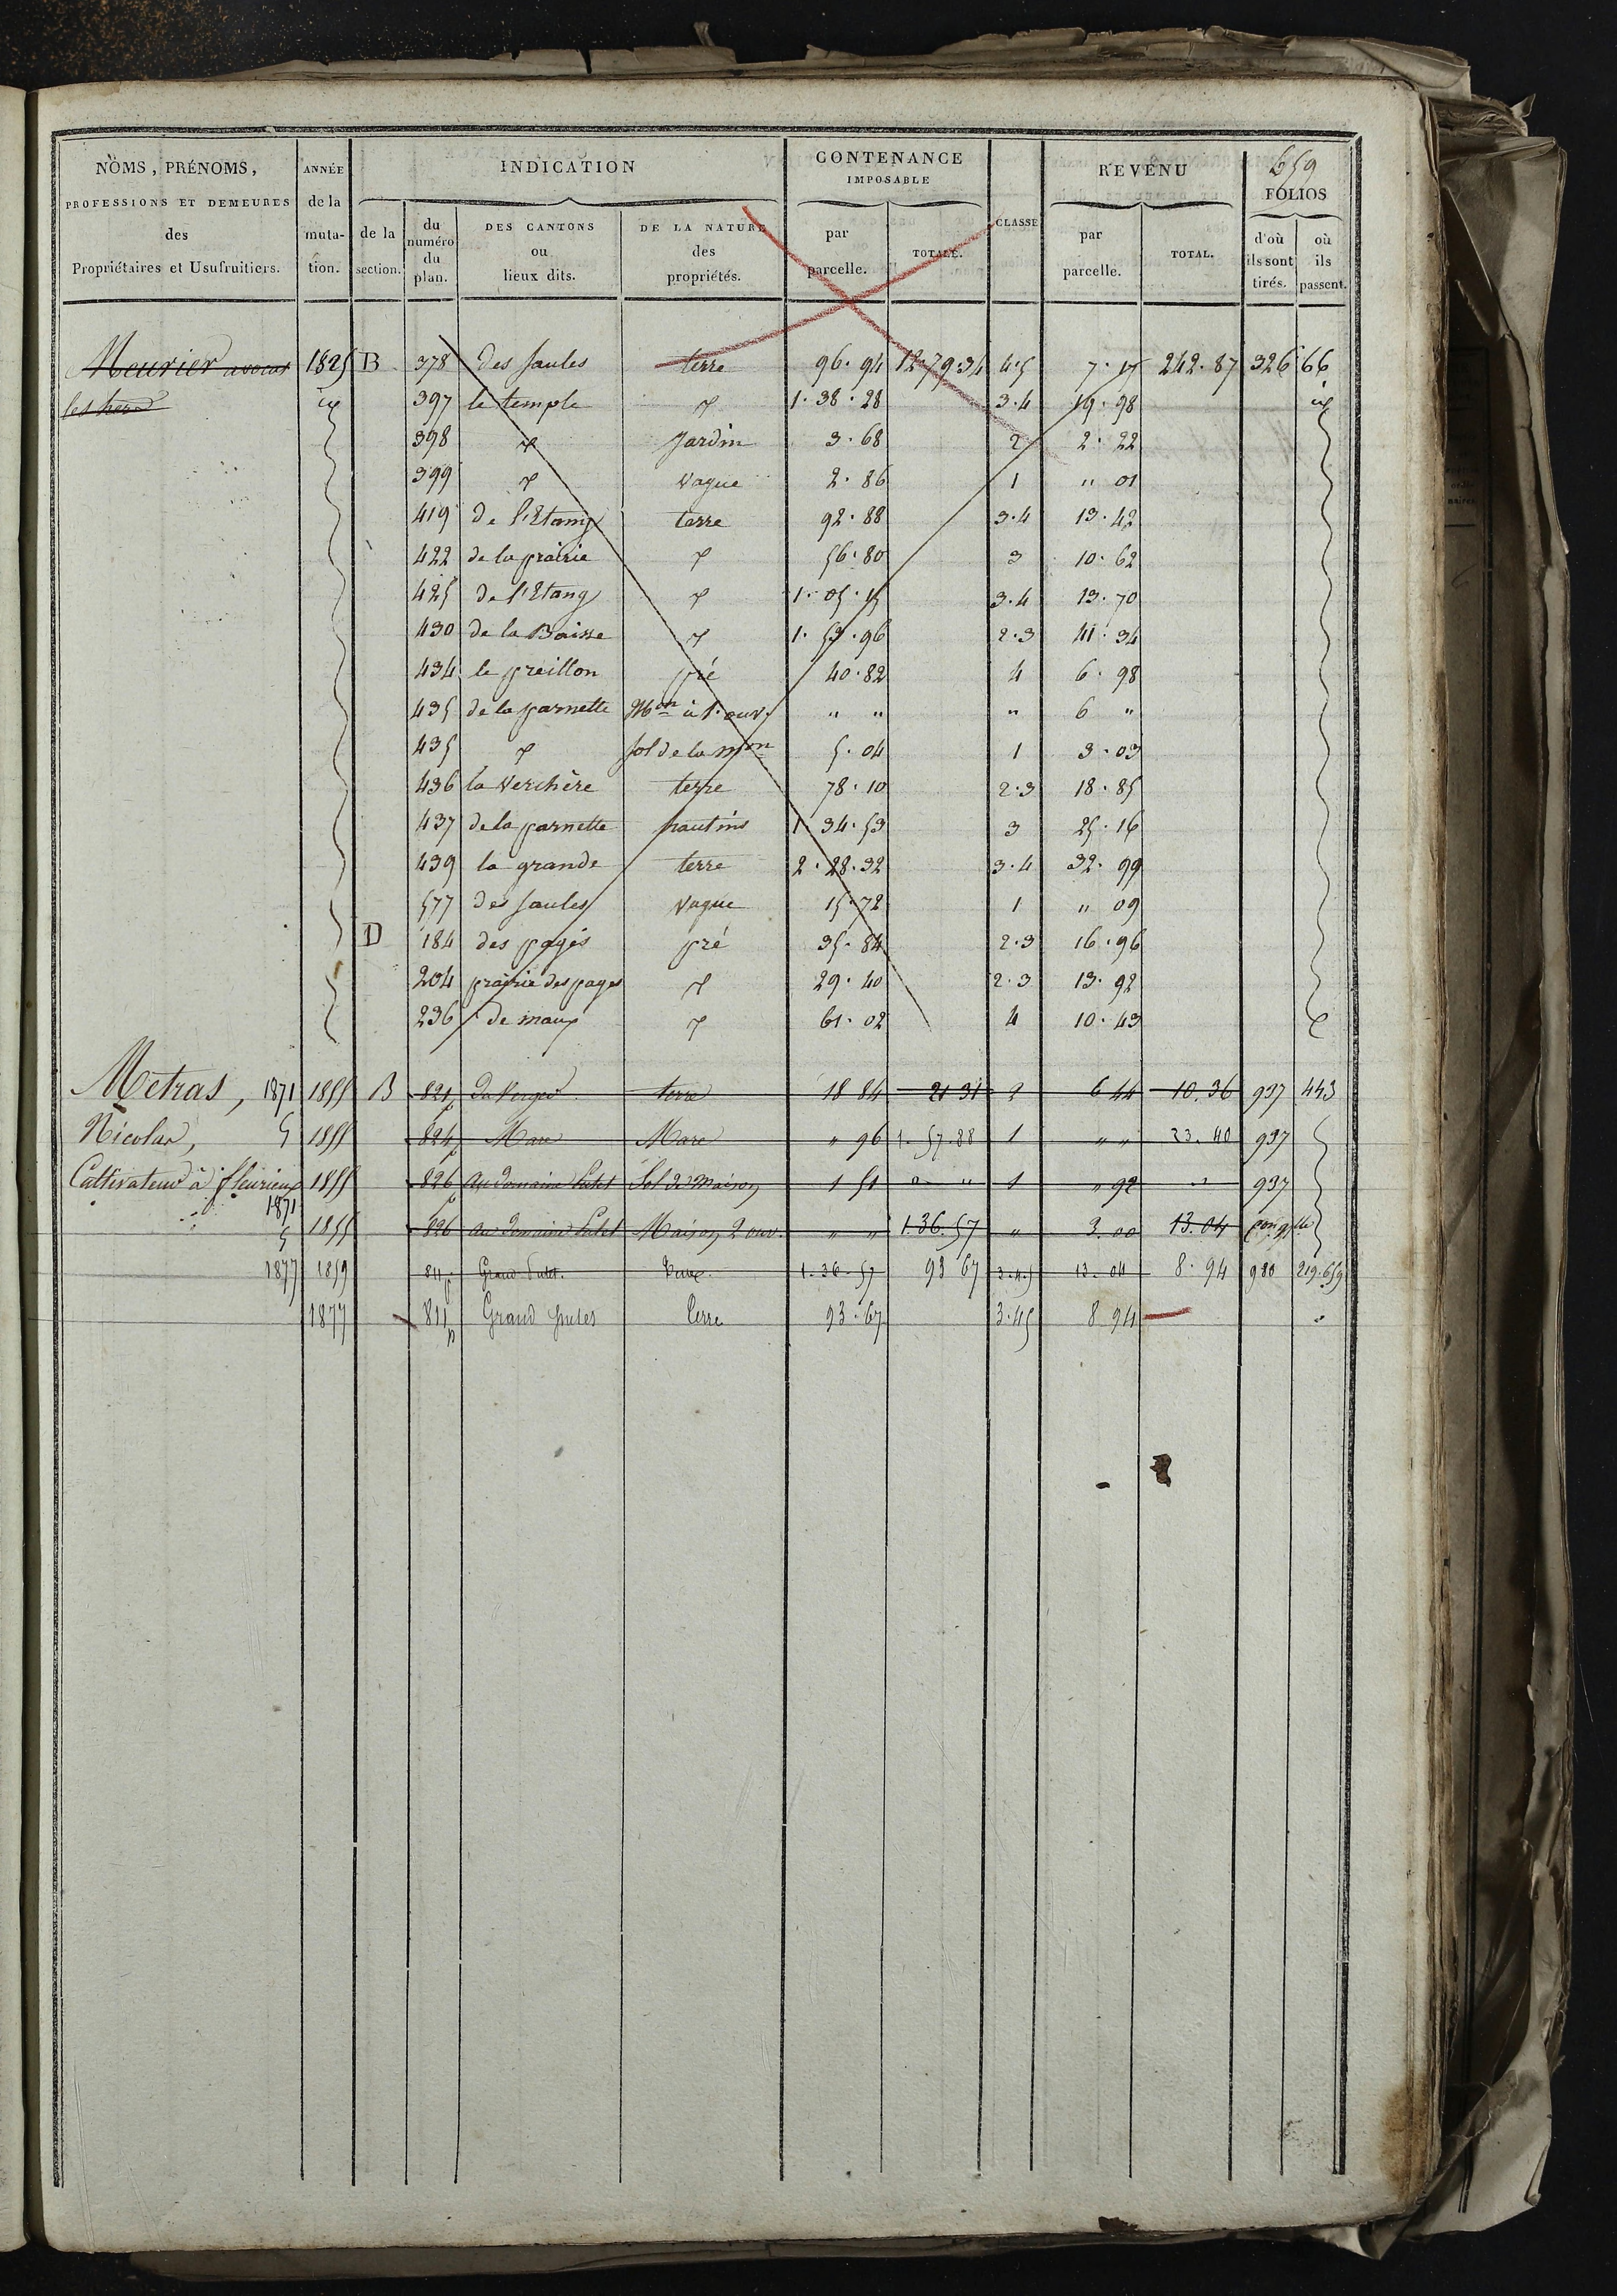 659
NOMS, PRÉNOMS, ANNÉE INDICATION CONTENANCE IMPOSABLE CLASSE REVENU FOLIOS
PROFESSIONS ET DEMEURES des Propriétaires et Usufruitiers. de la mutation. de la section. du numéro du plan. DES CANTONS ou lieux dits. DE LA NATURE des propriétés. par parcelle. TOTALE. par parcelle. TOTAL. d'où ils sont tirés. où ils passent.
Meurier avocat 1825 B 378 des saules terre 96.94 12.79.34 4.5 7.17 242.87 326 66
les her 397 le temple 1.38.28 3.4 19.98
398 Jardin 3.68 2 2.22
399 vague 2.86 1 " 01
419 de l'Etang terre 92.88 3.4 13.42
422 de la prairie 56.80 3 10.62
425 de l'Etang 1.05.15 3.4 13.70
430 de la Baisse 1.53.96 2.3 41.34
434 le preillon pré 40.82 4 6.98
435 de la parnette Mon à 1. ouv. " " " 6 "
435 sol de la mon 5.04 1 3.03
436 la Verchère terre 78.10 2.3 18.85
437 de la parnette hautins 1.34.53 3 25.16
439 la grande terre 2.28.32 3.4 32.99
577 des saules vague 15.72 1 " 09
D 184 des pages pré 35.84 2.3 16.96
204 prairie des pages 29.40 2.3 13.92
236 de maux 61.02 4 10.43
Metras, 1871 1855 B 821p du Verger terre 18 84 21 31 2 6 44 10.36 937 443
Nicolas, 1855 824p Mare Mare " 96 1.57.88 1 " " 23.40 937
Cultivateur à fleurieux 1855 826p au Domaine Putet Sol de Maison 1 51 " " 1 " 92 " 937
1871 1855 826 au Domaine Putet Maison 2 ouv. " " 1.36.57 " 3.00 13.04
1877 1859 811p Grand Putet. 1.36.57 93 67 3.4.5 13.04 8.94 980 219.659
1877 811p Grand Terre 93.67 3.45 8 94 "